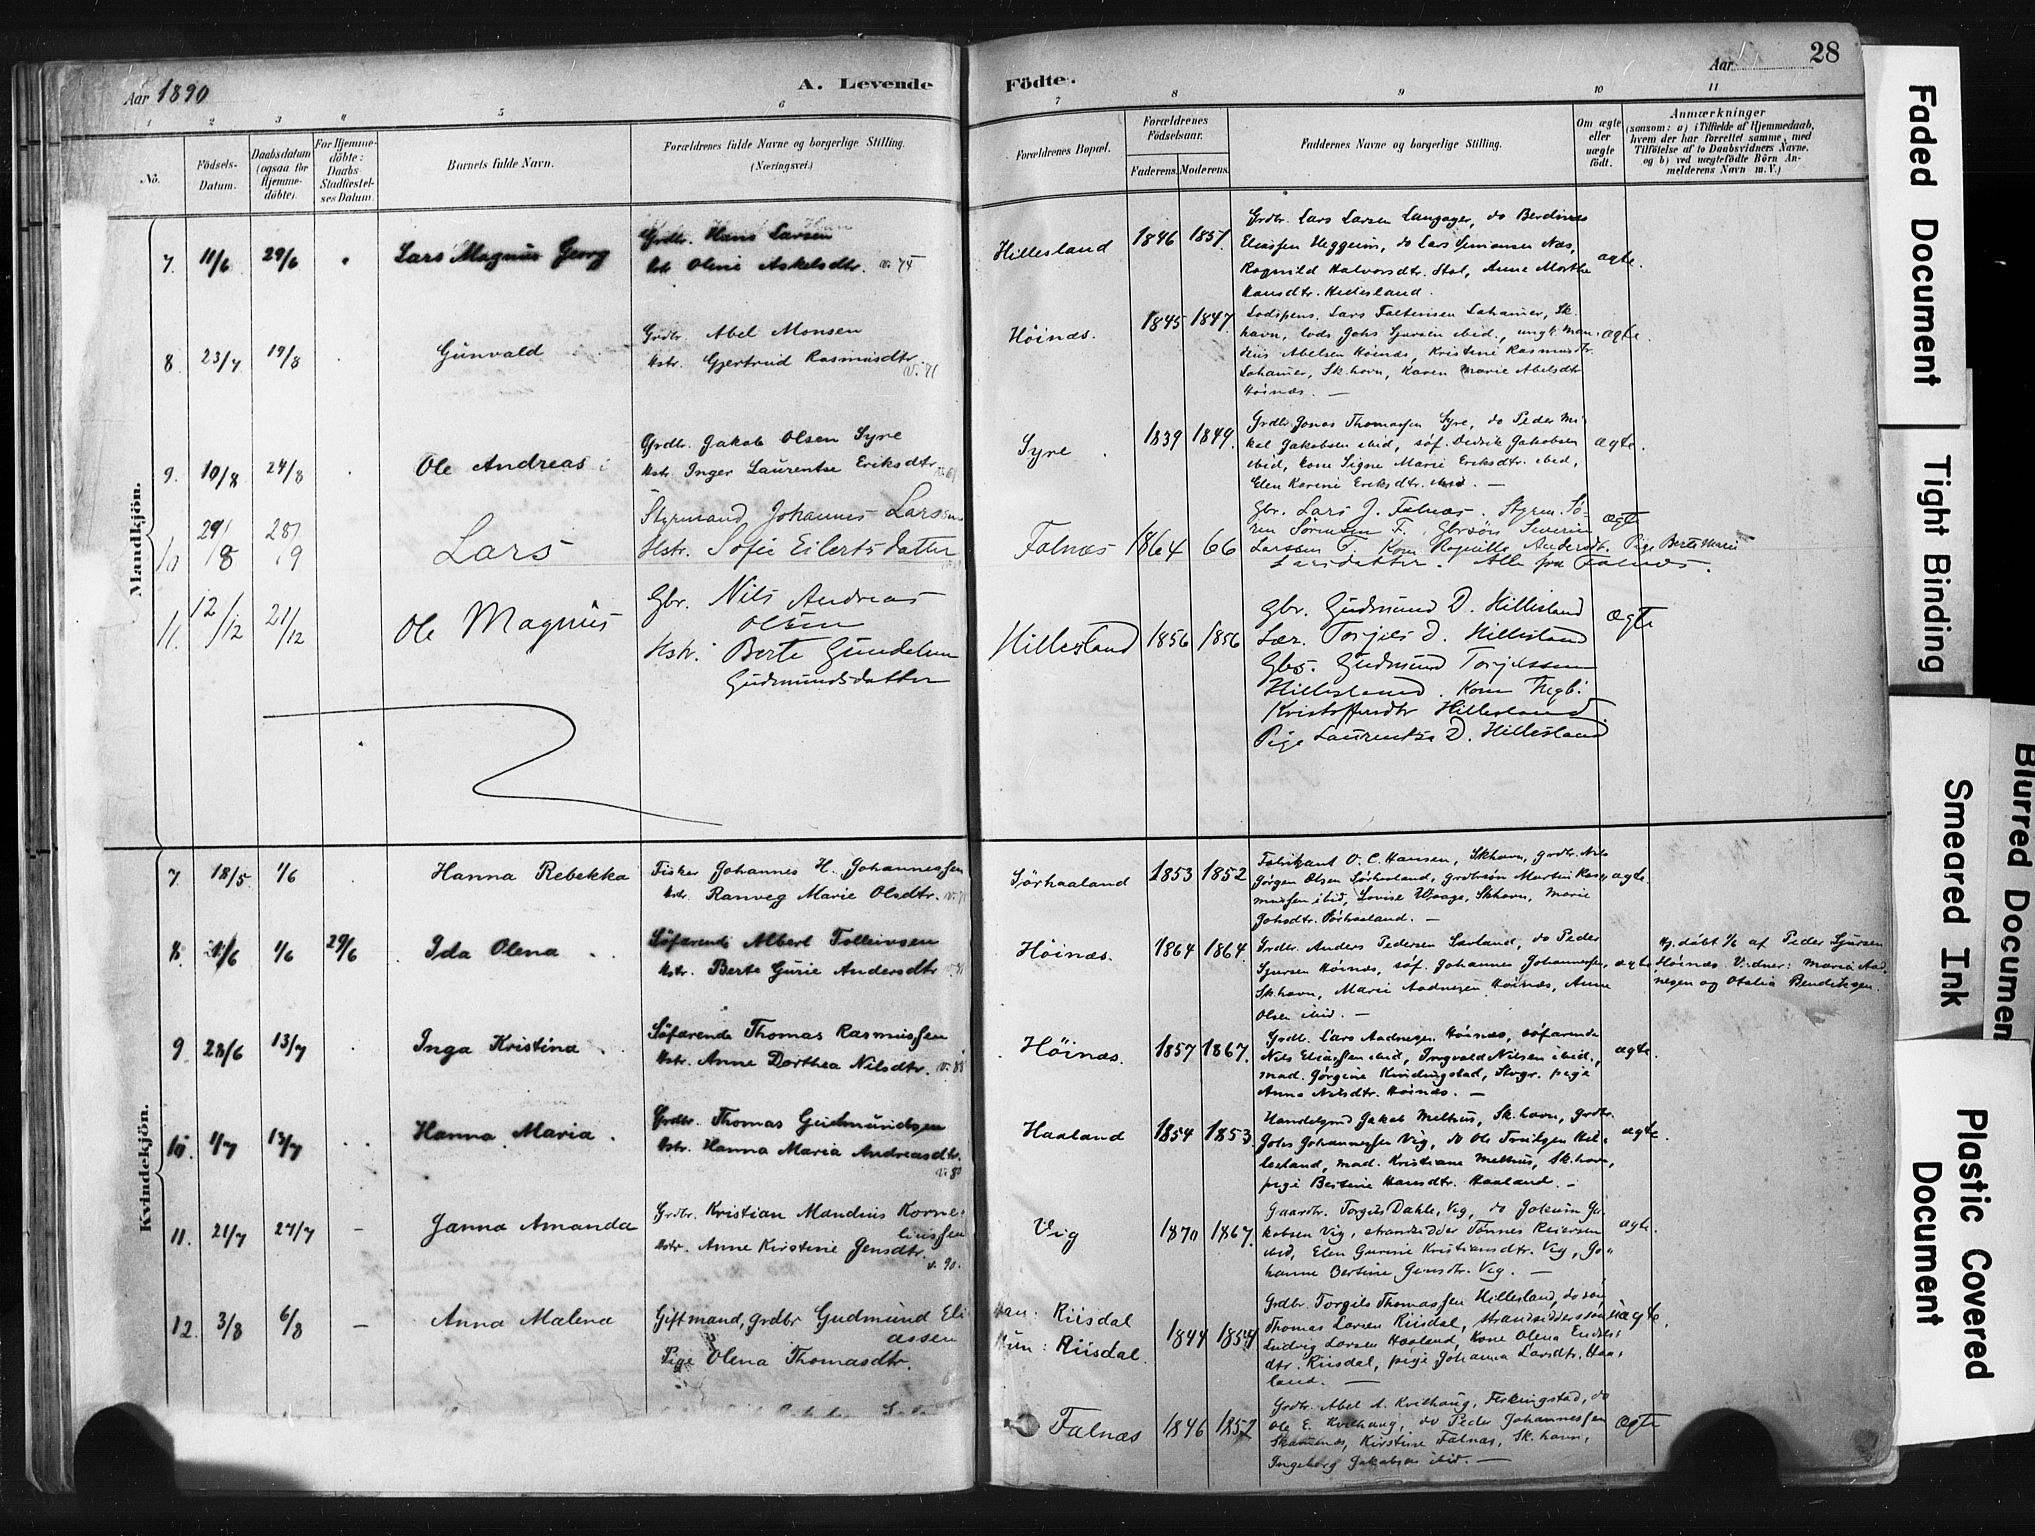 Aar 1890
A. Levende
Födte.
Aar
28
1 2 3 4 5 6 7 8 9 10 11
No.
Födsels-Datum.
Daabsdatum (ogsaa for Hjemme-döbte).
For Hjemme-döbte: Daabs-Stadfæstel-ses Datum.
Barnets fulde Navn.
Forældrenes fulde Navne og borgerlige Stilling.
(Næringsvei.)
Forældrenes Bopæl.
Forældrenes Födselsaar.
Faderens. Moderens.
Faddernes Navne og borgerlige Stilling.
Om ægte eller uægte födt.
Anmærkninger
(saasom: a) i Tilfælde af Hjemmedaab,
hvem der har forrettet samme, med
Tilföielse af to Daabsvidners Navne.
og b) ved uægtefödte Börn An-
melderens Navn m. V.)
Mandkjön.
7. 11/6 29/6 Lars Magnus Georg
Grdbr. Hans Larsen
Hstr. Oline Askelsdtr. v. 75
Hillesland 1846 1857.
Grdbr. Lars Larsen Langager, do Berdines
Eliassen Heggeim, do Lars Simonsen Næs,
Ragnild Halvorsdtr. Stol, Anne Marthe
Hansdtr. Hillesland.
ægte.
8. 23/7 19/8 Gunvald
Grdbr. Abel Monsen
Hstr. Gjertrud Rasmusdtr. v. 71
Höinæs. 1845 1847.
Lodspens. Lars Falteinsen Lahamer, Sk.
havn, lods Johs Sjursen ibid., ungk. Man-
dius Abelsen Höinæs, Kristine Rasmusdtr.
Lahamer, Sk.havn, Karen Marie Abelsdtr
Höinæs. —
ægte.
9. 10/8 24/8 Ole Andreas
Grdbr. Jakob Olsen Syre
Hstr. Inger Laurentse Eriksdtr.
Syre. 1839 1849.
Grdbr. Jonas Thomassen Syre, do Peder Mi-
kal Jakobsen ibid, söf. Didrik Jakobsen
ibid, kone Signe Marie Eriksdtr. ibid,
Elen Karine Eriksdtr. ibid. —
ægte.
10 29/8 28/9 Lars
Styrmand Johannes Larssen
Hstr. Sofie Eilertsdatter
Falnæs 1864 66
Gbr. Lars J. Falnæs. Styrm Sö-
ren Sörensen F. Gbrsön Severin
Larssen F. Kone Ragnille Andersdt. Pige Berte Marie
Larsdatter. Alle fra Falnæs.
ægte
11. 12/12 21/12 Ole Magnus
Gbr. Nils Andreas
Olsen
Hstr. Berte Gundelin
Gudmundsdatter
Hillesland 1856 1856
Gbr. Gudmund D. Hillesland
Lær. Torjels D. Hillesland
Gbrs. Gudmund Torjelssen
Hillesland. Kone Ingb.
Kristoffersdtr Hillesland.
Pige Laurentse D. Hillesland
ægte
Kvindekjön.
7. 18/5. 1/6 Hanna Rebekka
Fisker Johannes H. Johannessen
Hstr. Ranveg Marie Olsdtr.
Sörhaaland 1853 1852
Fabrikant O. C. Hansen, Skhavn, grdbr. Nils
Jörgen Olsen Sörhaaland, grdbrsön Martin Ras-
mussen ibid, Lovise Waage, Skhavn, Marie
Johsdtr. Sörhaaland. —
ægte.
8. 1/6 29/6 Ida Olena
Söfarende Albert Tolleivsen
Hstr. Berte Gurie Andersdtr
Höinæs. 1864 1864.
Grdbr. Anders Pedersen Sævland, do Peder
Sjursen Höinæs, söf. Johannes Johannessen,
Sk.havn, Marie Aadnesen Höinæs, Anne
Olsen ibid. —
ægte
Hj. döbt 1/6 af Peder Sjursen
Höinæs. Vidner: Maria Aad-
nesen og Otalia Bendiksen.
9 28/6 13/7 Inga Kristina
Söfarende Thomas Rasmussen
Hstr. Anne Dorthea Nilsdtr. v. 88
Höinæs. 1857 1867.
Grdb. Lars Aadnesen Höinæs, söfarende
Nils Eliassen ibid, Ingvald Nilsen ibid,
mad. Jörgine Kvindingstad, Stvgr. pige
Anna Nilsdtr. Höinæs. —
ægte.
10. 1/7 13/7 Hanna Maria.
Grdbr. Thomas Gudmundsen
Hstr. Hanna Maria Andreasdtr. v. 80
Haaland 1854 1853.
Handelsmd Jakob Melhus, Sk.havn, grdbr.
Johs Johannessen Vig, do Ole Torilsen Hil-
lesland, mad. Kristiane Melhus, Sk.havn,
pige Bertine Hansdtr. Haaland. —
ægte.
11. 21/7 27/7 — Janna Amanda
Grdbr. Kristian Mandius Korne-
liussen
Hstr. Anne Kirstine Jensdtr. v. 90.
Vig 1870 1867.
Gaardbr. Torgils Dahle, Vig, do Jokum Ja-
kobsen Vig, strandsidder Tönnes Reiersen
ibid, Elen Gurine Kristiansdtr. Vig, Jo-
hanne Bertine Jensdtr. Vig. —
ægte.
12. 3/8 6/8 — Anna Malena
Gift mand, grdbr Gudmund Eli
assen
Pige Olena Thomasdtr.
Han. Riisdal
Hun: Riisdal. 1844 1854
Grdbr. Torgils Thomassen Hillesland, do sön
Thomas Larsen Riisdal, strandsidderssön
Ludvig Larsen Haaland, Kone Olena Endres-
dtr. Riisdal, pige Johanna Larsdtr. Haa-
land. —
uægte.
Falnæs 1846 1852
Grdbr. Abel A. Kvilhaug, Ferkingstad, do
Ole E. Kvilhaug, do Peder Johannessen
Skaanæs, Kirstine Falnæs, Sk.havn,
Ingeborg Jakobsen ibid. —
ægte
Faded Document
Tight Binding
Blurred Document
Smeared Ink
Plastic Covered
Document